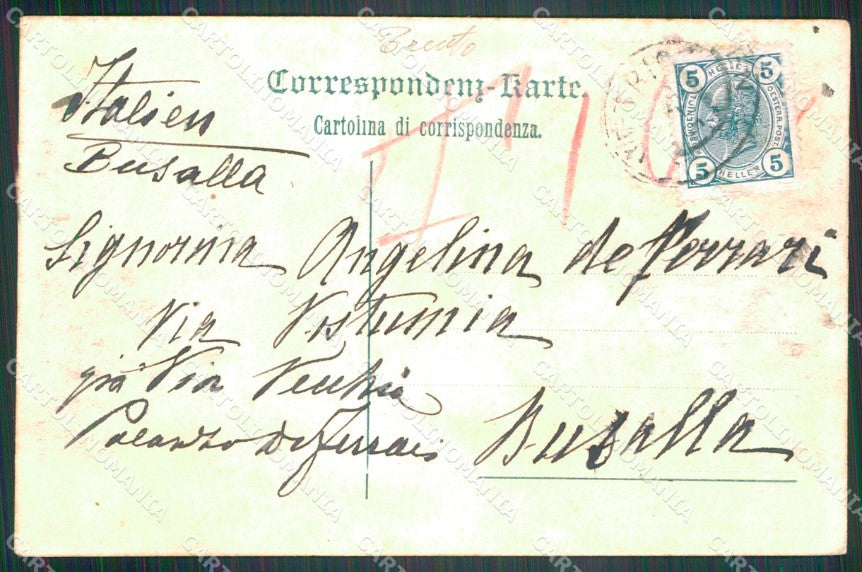 Trento
Correspondenz-Karte.
Cartolina di corrispondenza.
5 HELLER 5
OESTERR. POST
5 HELLER 5
Italien
Busalla
Signorina Angelina de Ferrari
Via Postumia
già Via Vecchia
Palazzo De Ferrari
Busalla
CARTOLINOMANIA